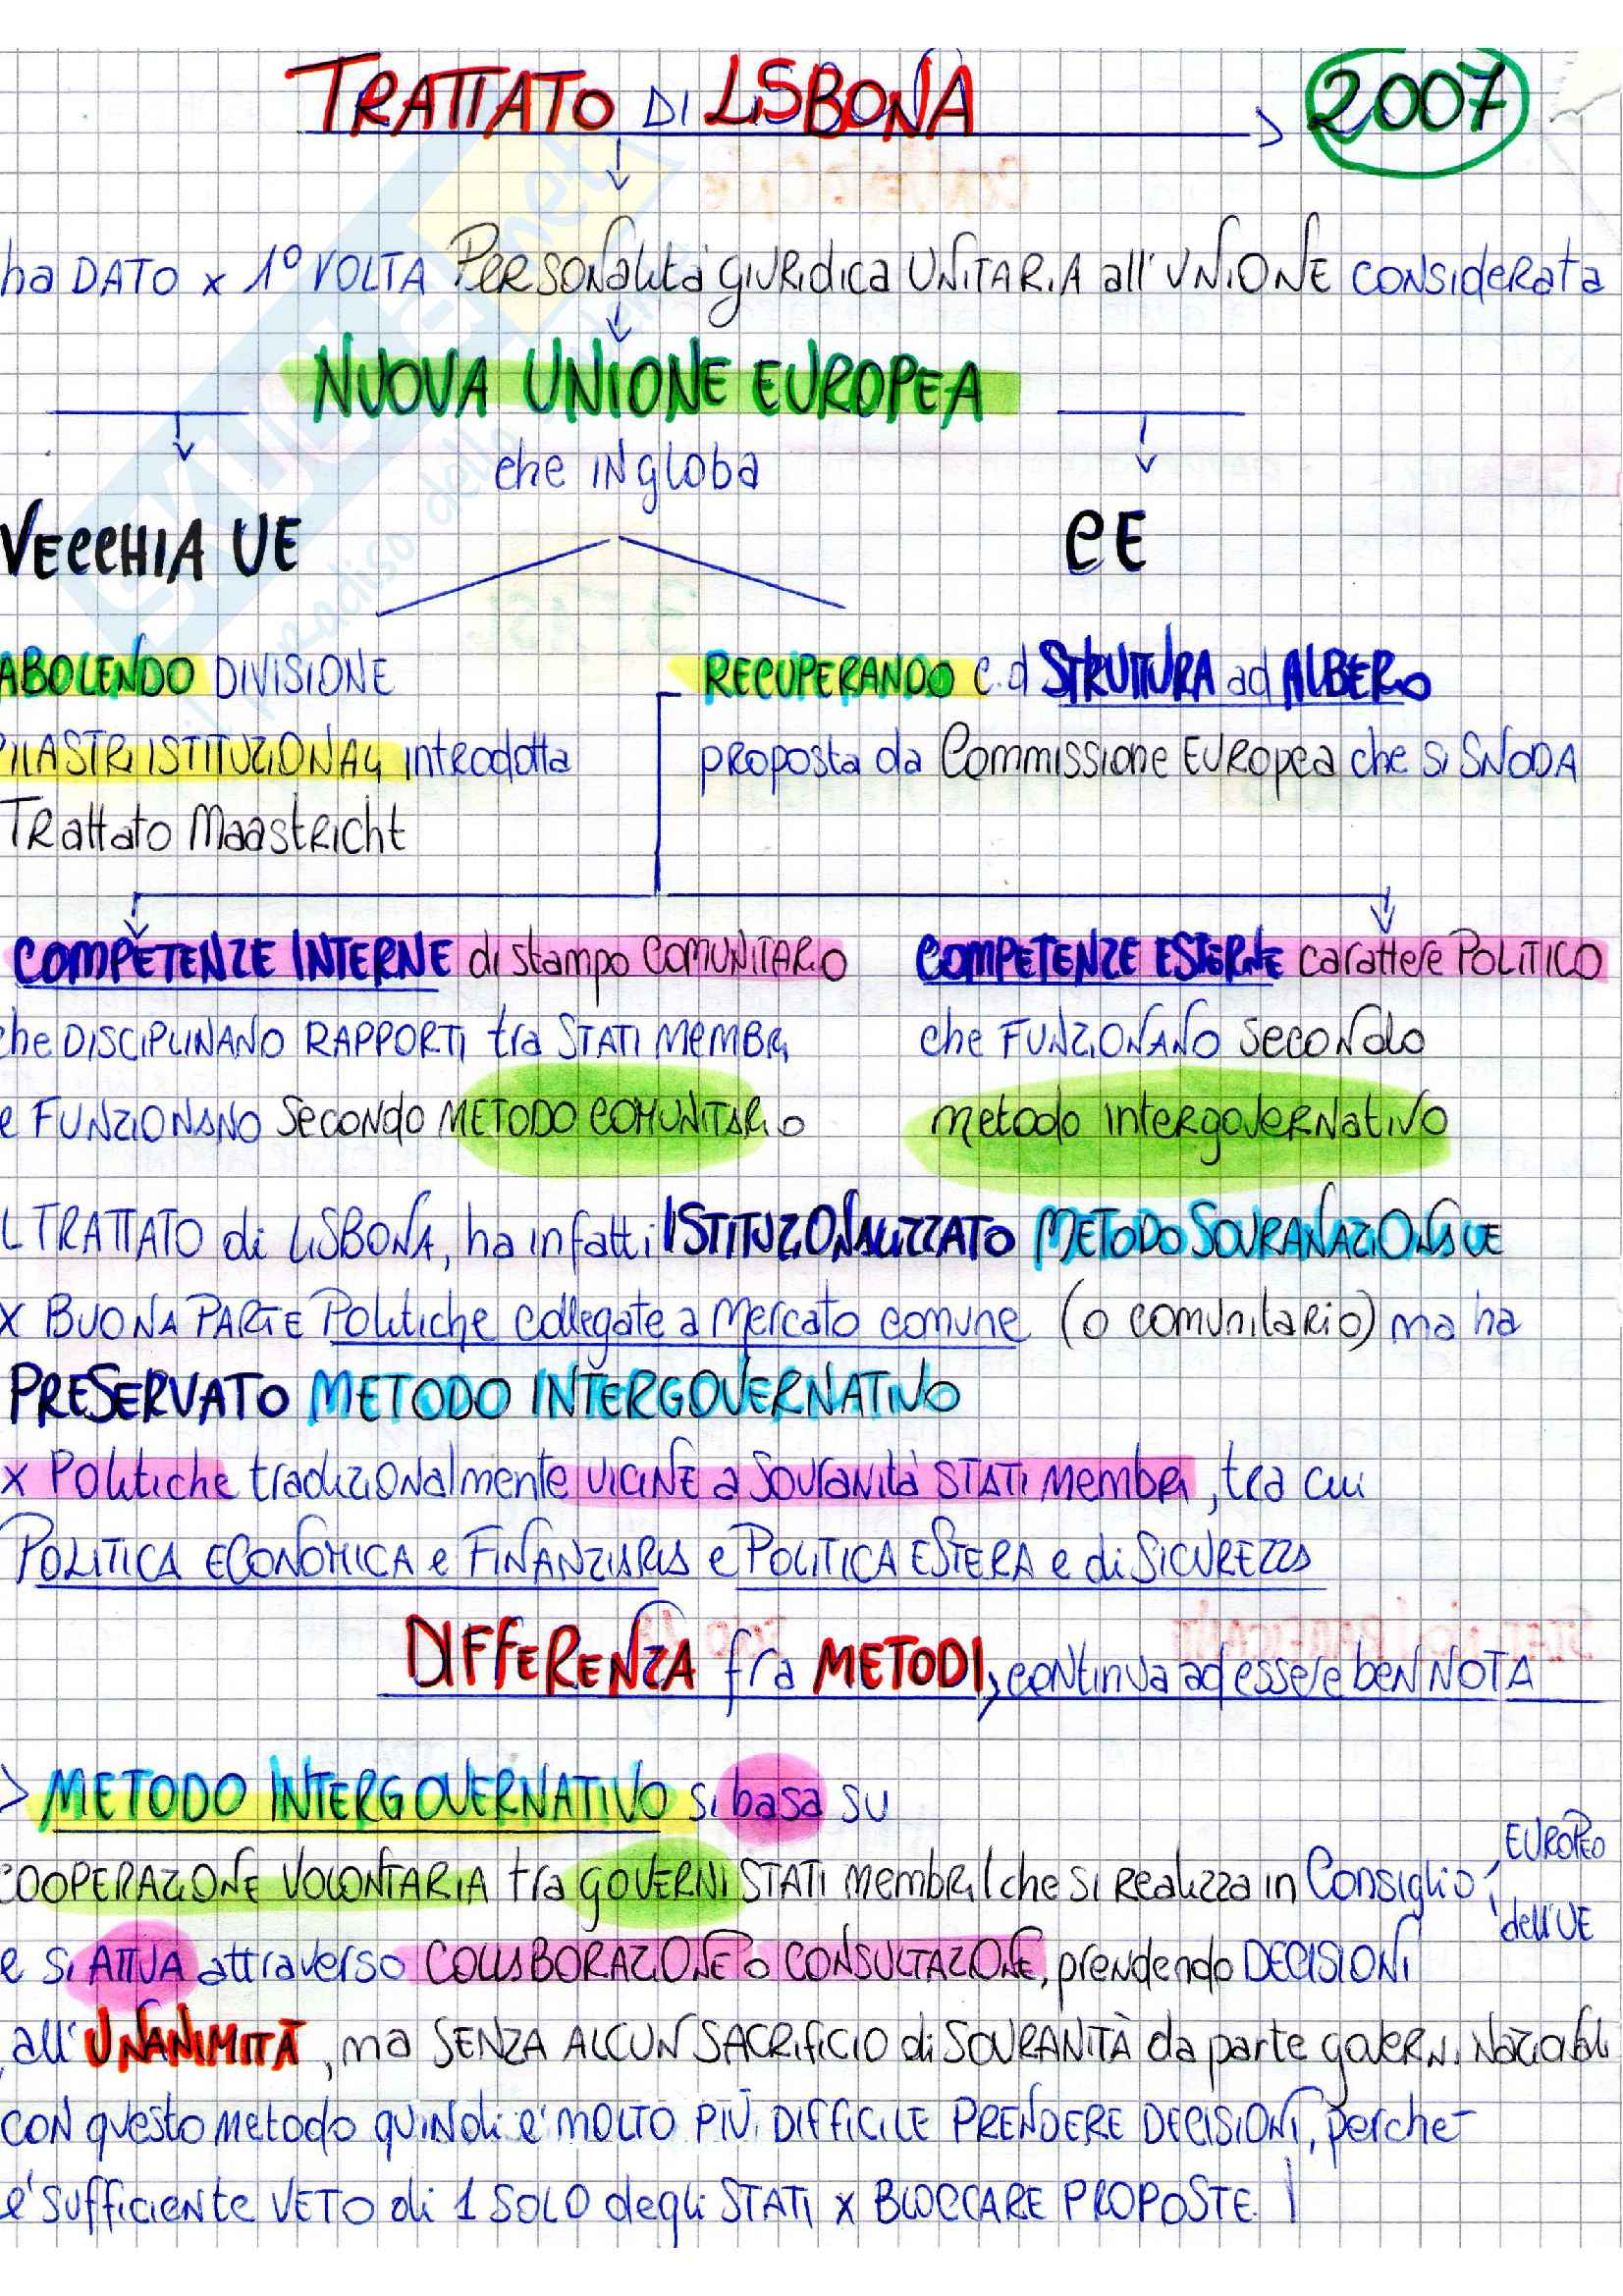 TRATTATO DI LISBONA > 2007
ha DATO x 1° VOLTA Personalità giuridica UNITARIA all'UNIONE considerata
NUOVA UNIONE EUROPEA
che ingloba
VECCHIA UE CE
ABOLENDO DIVISIONE
RECUPERANDO c.d STRUTTURA ad ALBERO
PILASTRI ISTITUZIONALI introdotta
proposta da Commissione Europea che si SNODA
Trattato Maastricht
COMPETENZE INTERNE di stampo COMUNITARIO
COMPETENZE ESTERNE carattere POLITICO
che DISCIPLINANO RAPPORTI tra STATI MEMBRI
che FUNZIONANO secondo
e FUNZIONANO secondo METODO COMUNITARIO
metodo intergovernativo
L TRATTATO di LISBONA, ha infatti ISTITUZIONALIZZATO METODO SOVRANAZIONALE
x BUONA PARTE Politiche collegate a Mercato comune (o comunitario) ma ha
PRESERVATO METODO INTERGOVERNATIVO
x Politiche tradizionalmente VICINE a Sovranità STATI Membri, tra cui
POLITICA ECONOMICA e FINANZIARIA e POLITICA ESTERA e di SICUREZZA
DIFFERENZA fra METODI, continua ad essere ben NOTA
> METODO INTERGOVERNATIVO si basa su
COOPERAZIONE VOLONTARIA tra GOVERNI STATI Membri (che si realizza in Consiglio EUROPEO
dell'UE
e si ATTUA attraverso COLLABORAZIONE o CONSULTAZIONE, prendendo DECISIONI
all'UNANIMITÀ, ma SENZA ALCUN SACRIFICIO di SOVRANITÀ da parte governi Nazionali
CON questo Metodo quindi e' MOLTO PIÙ DIFFICILE PRENDERE DECISIONI, perche'
e' sufficiente VETO di 1 SOLO degli STATI x BLOCCARE PROPOSTE.